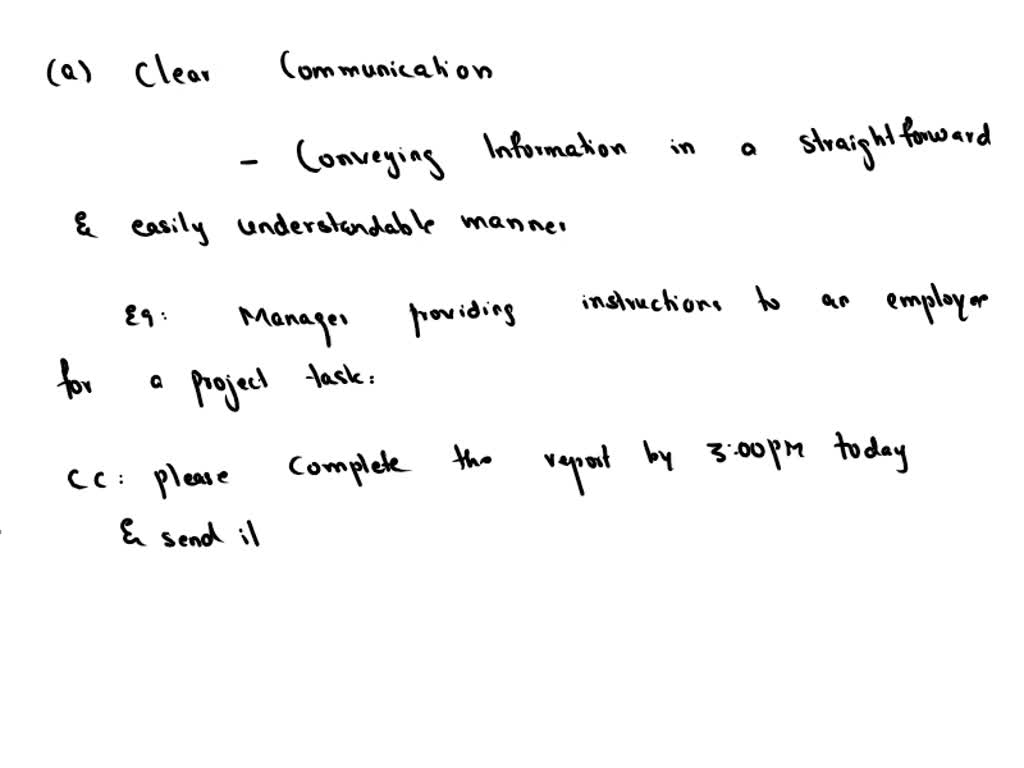 (a) Clear Communication
- Conveying Information in a straightforward
& easily understandable manner
Eg: Manager providing instructions to an employee
for a project task:
CC: please complete the report by 3:00PM today
& send it